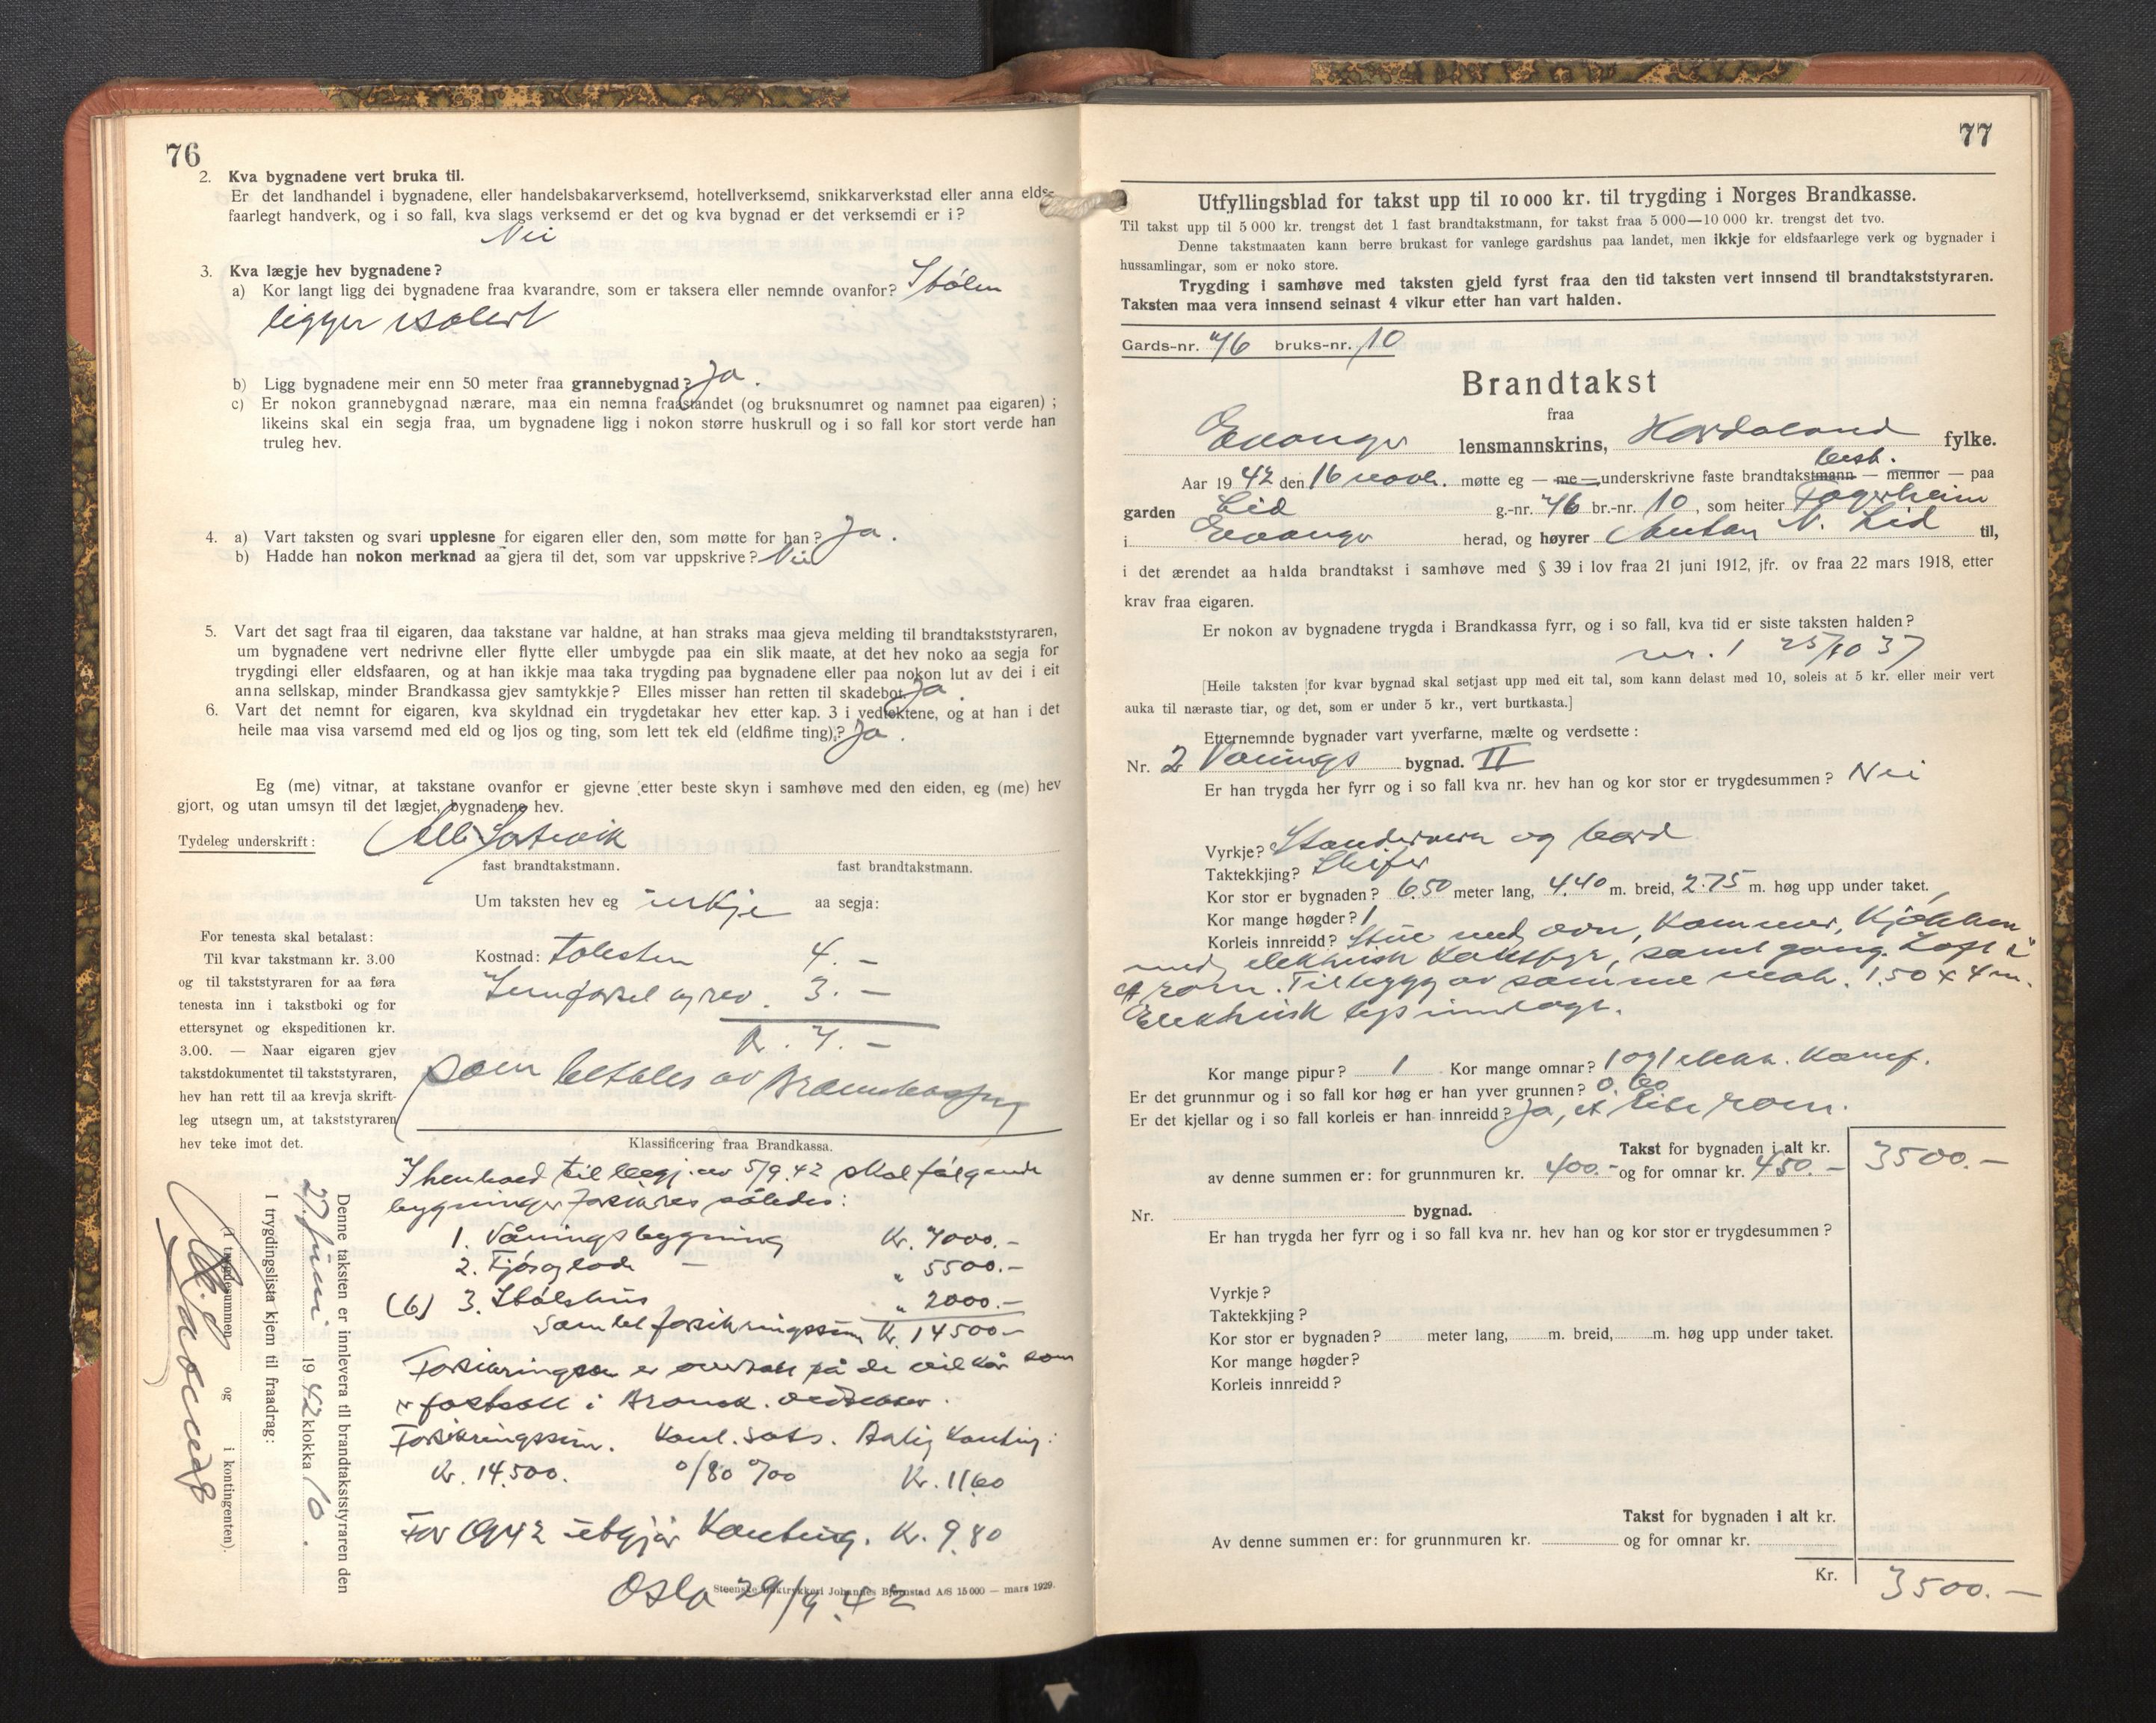 76
2. Kva bygnadene vert bruka til.
Er det landhandel i bygnadene, eller handelsbakarverksemd, hotellverksemd, snikkarverkstad eller anna elds-
faarlegt handverk, og i so fall, kva slags verksemd er det og kva bygnad er det verksemdi er i?
Nei
3. Kva lægje hev bygnadene?
a) Kor langt ligg dei bygnadene fraa kvarandre, som er taksera eller nemnde ovanfor? Stølen
ligger isolert
b) Ligg bygnadene meir enn 50 meter fraa grannebygnad? Ja.
c) Er nokon grannebygnad nærare, maa ein nemna fraastandet (og bruksnumret og namnet paa eigaren);
likeins skal ein segja fraa, um bygnadene ligg i nokon større huskrull og i so fall kor stort verde han
truleg hev.
4. a) Vart taksten og svari upplesne for eigaren eller den, som møtte for han? Ja.
b) Hadde han nokon merknad aa gjera til det, som var uppskrive? Nei
5. Vart det sagt fraa til eigaren, daa takstane var haldne, at han straks maa gjeva melding til brandtakststyraren,
um bygnadene vert nedrivne eller flytte eller umbygde paa ein slik maate, at det hev noko aa segja for
trygdingi eller eldsfaaren, og at han ikkje maa taka trygding paa bygnadene eller paa nokon lut av dei i eit
anna sellskap, minder Brandkassa gjev samtykkje? Elles misser han retten til skadebot. Ja.
6. Vart det nemnt for eigaren, kva skyldnad ein trygdetakar hev etter kap. 3 i vedtektene, og at han i det
heile maa visa varsemd med eld og ljos og ting, som lett tek eld (eldfime ting)? Ja.
Eg (me) vitnar, at takstane ovanfor er gjevne etter beste skyn i samhøve med den eiden, eg (me) hev
gjort, og utan umsyn til det lægjet, bygnadene hev.
Tydeleg underskrift:
fast brandtakstmann. fast brandtakstmann.
Um taksten hev eg inkje aa segja:
For tenesta skal betalast:
Til kvar takstmann kr. 3.00
og til takststyraren for aa føra
tenesta inn i takstboki og for
ettersynet og ekspeditionen kr.
3.00. — Naar eigaren gjev
takstdokumentet til takststyraren,
hev han rett til aa krevja skrift-
leg utsegn um, at takststyraren
hev teke imot det.
Kostnad: taksten 4.—
Innførsel og rev. 3.—
Kr. 7.—
som betales av
Klassificering fraa Brandkassa.
I henhold til begj. av 5/9.42 skal følgende
bygninger forsikres således:
1. Våningsbygning Kr. 7000.—
2. Fjøs og løde — " 5500.—
(6) 3. Stølshus " 2000.—
Samlet forsikringssum Kr. 14500.—
Forsikringen er overtatt på de vilkår som
er fastsatt i Brannk. vedtekter.
Forsikringssum. Kont. sats. Årlig konting:
Kr. 14.500. 0/80 ‰ Kr. 11.60
For 1942 utgjør konting. Kr. 9.80
Oslo 29/9.42
Steenske Boktrykkeri Johannes Bjørnstad A/S 15000 — mars 1929.
Denne taksten er innlevera til brandtakststyraren den
27 juni 1942 klokka 10.
I trygdingslista kjem til fraadrag:
(I trygdesummen og i kontingenten).
77
Utfyllingsblad for takst upp til 10 000 kr. til trygding i Norges Brandkasse.
Til takst upp til 5 000 kr. trengst det 1 fast brandtakstmann, for takst fraa 5 000—10 000 kr. trengst det tvo.
Denne takstmaaten kann berre brukast for vanlege gardshus paa landet, men ikkje for eldsfaarlege verk og bygnader i
hussamlingar, som er noko store.
Trygding i samhøve med taksten gjeld fyrst fraa den tid taksten vert innsend til brandtakststyraren.
Taksten maa vera innsend seinast 4 vikur etter han vart halden.
Gards-nr. 76 bruks-nr. 10
Brandtakst
fraa
Evanger lensmannskrins, Hordaland fylke.
best.
Aar 1942 den 16 novbr. møtte eg — me — underskrivne faste brandtakstmann — menner — paa
garden Lid g.-nr. 76 br.-nr. 10, som heiter Fagerheim
i Evanger herad, og høyrer Anton N. Lid til,
i det ærendet aa halda brandtakst i samhøve med § 39 i lov fraa 21 juni 1912, jfr. ov fraa 22 mars 1918, etter
krav fraa eigaren.
Er nokon av bygnadene trygda i Brandkassa fyrr, og i so fall, kva tid er siste taksten halden?
nr. 1 25/10 37
[Heile taksten for kvar bygnad skal setjast upp med eit tal, som kann delast med 10, soleis at 5 kr. eller meir vert
auka til næraste tiar, og det, som er under 5 kr., vert burtkasta.]
Etternemnde bygnader vart yverfarne, mælte og verdsette:
Nr. 2 Vånings bygnad. II
Er han trygda her fyrr og i so fall kva nr. hev han og kor stor er trygdesummen? Nei
Vyrkje? Standerverk og bord
Taktekkjing? Skifer
Kor stor er bygnaden? 6.50 meter lang, 4.40 m. breid, 2.75 m. høg upp under taket.
Kor mange høgder? 1
Korleis innreidd? Stue med ovn, kammer, kjøkken
med elektrisk komfyr, samt gang. Loft i
et rom. Tilbygg av samme mat. 1.50 x 4 m.
Elektrisk lys innlagt.
Kor mange pipur? 1 Kor mange omnar? 1 og 1 elektr. komf.
Er det grunnmur og i so fall kor høg er han yver grunnen? 0.60
Er det kjellar og i so fall korleis er han innreidd? Ja, et lite rom.
Takst for bygnaden i alt kr. 3500.—
av denne summen er: for grunnmuren kr. 400.— og for omnar kr. 450.—
Nr. bygnad.
Er han trygda her fyrr og i so fall kva nr. hev han og kor stor er trygdesummen?
Vyrkje?
Taktekkjing?
Kor stor er bygnaden? meter lang, m. breid, m. høg upp under taket.
Kor mange høgder?
Korleis innreidd?
Takst for bygnaden i alt kr.
Av denne summen er: for grunnmuren kr. og for omnar kr.
Kr. 3500.—